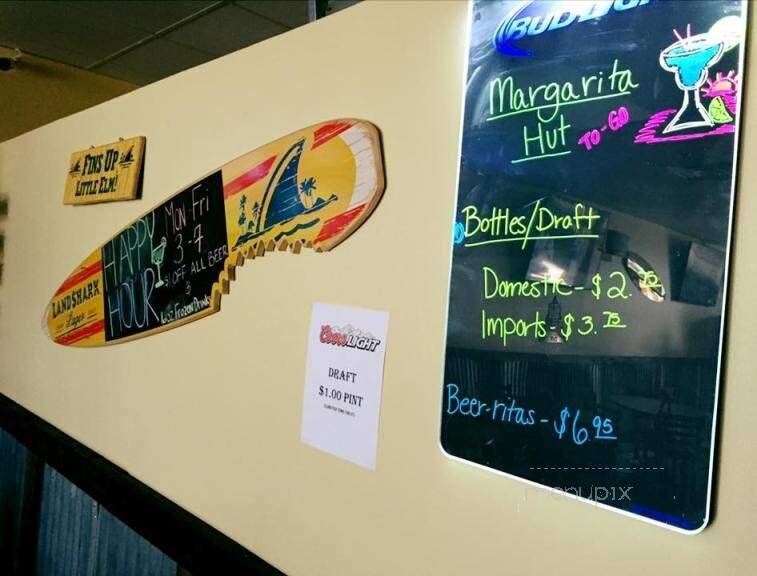 FINS UP
LITTLE ELM!
LANDSHARK
Lager
HAPPY
HOUR
MON-Fri
3-7
$1 OFF ALL BEER
Frozen Drinks
Coors LIGHT
DRAFT
$1.00 PINT
LIMITED TIME ONLY
BUD LIGHT
Margarita
Hut
TO-GO
Bottles/Draft
Domestic - $2.75
Imports - $3.75
Beer-ritas - $6.95
menupix